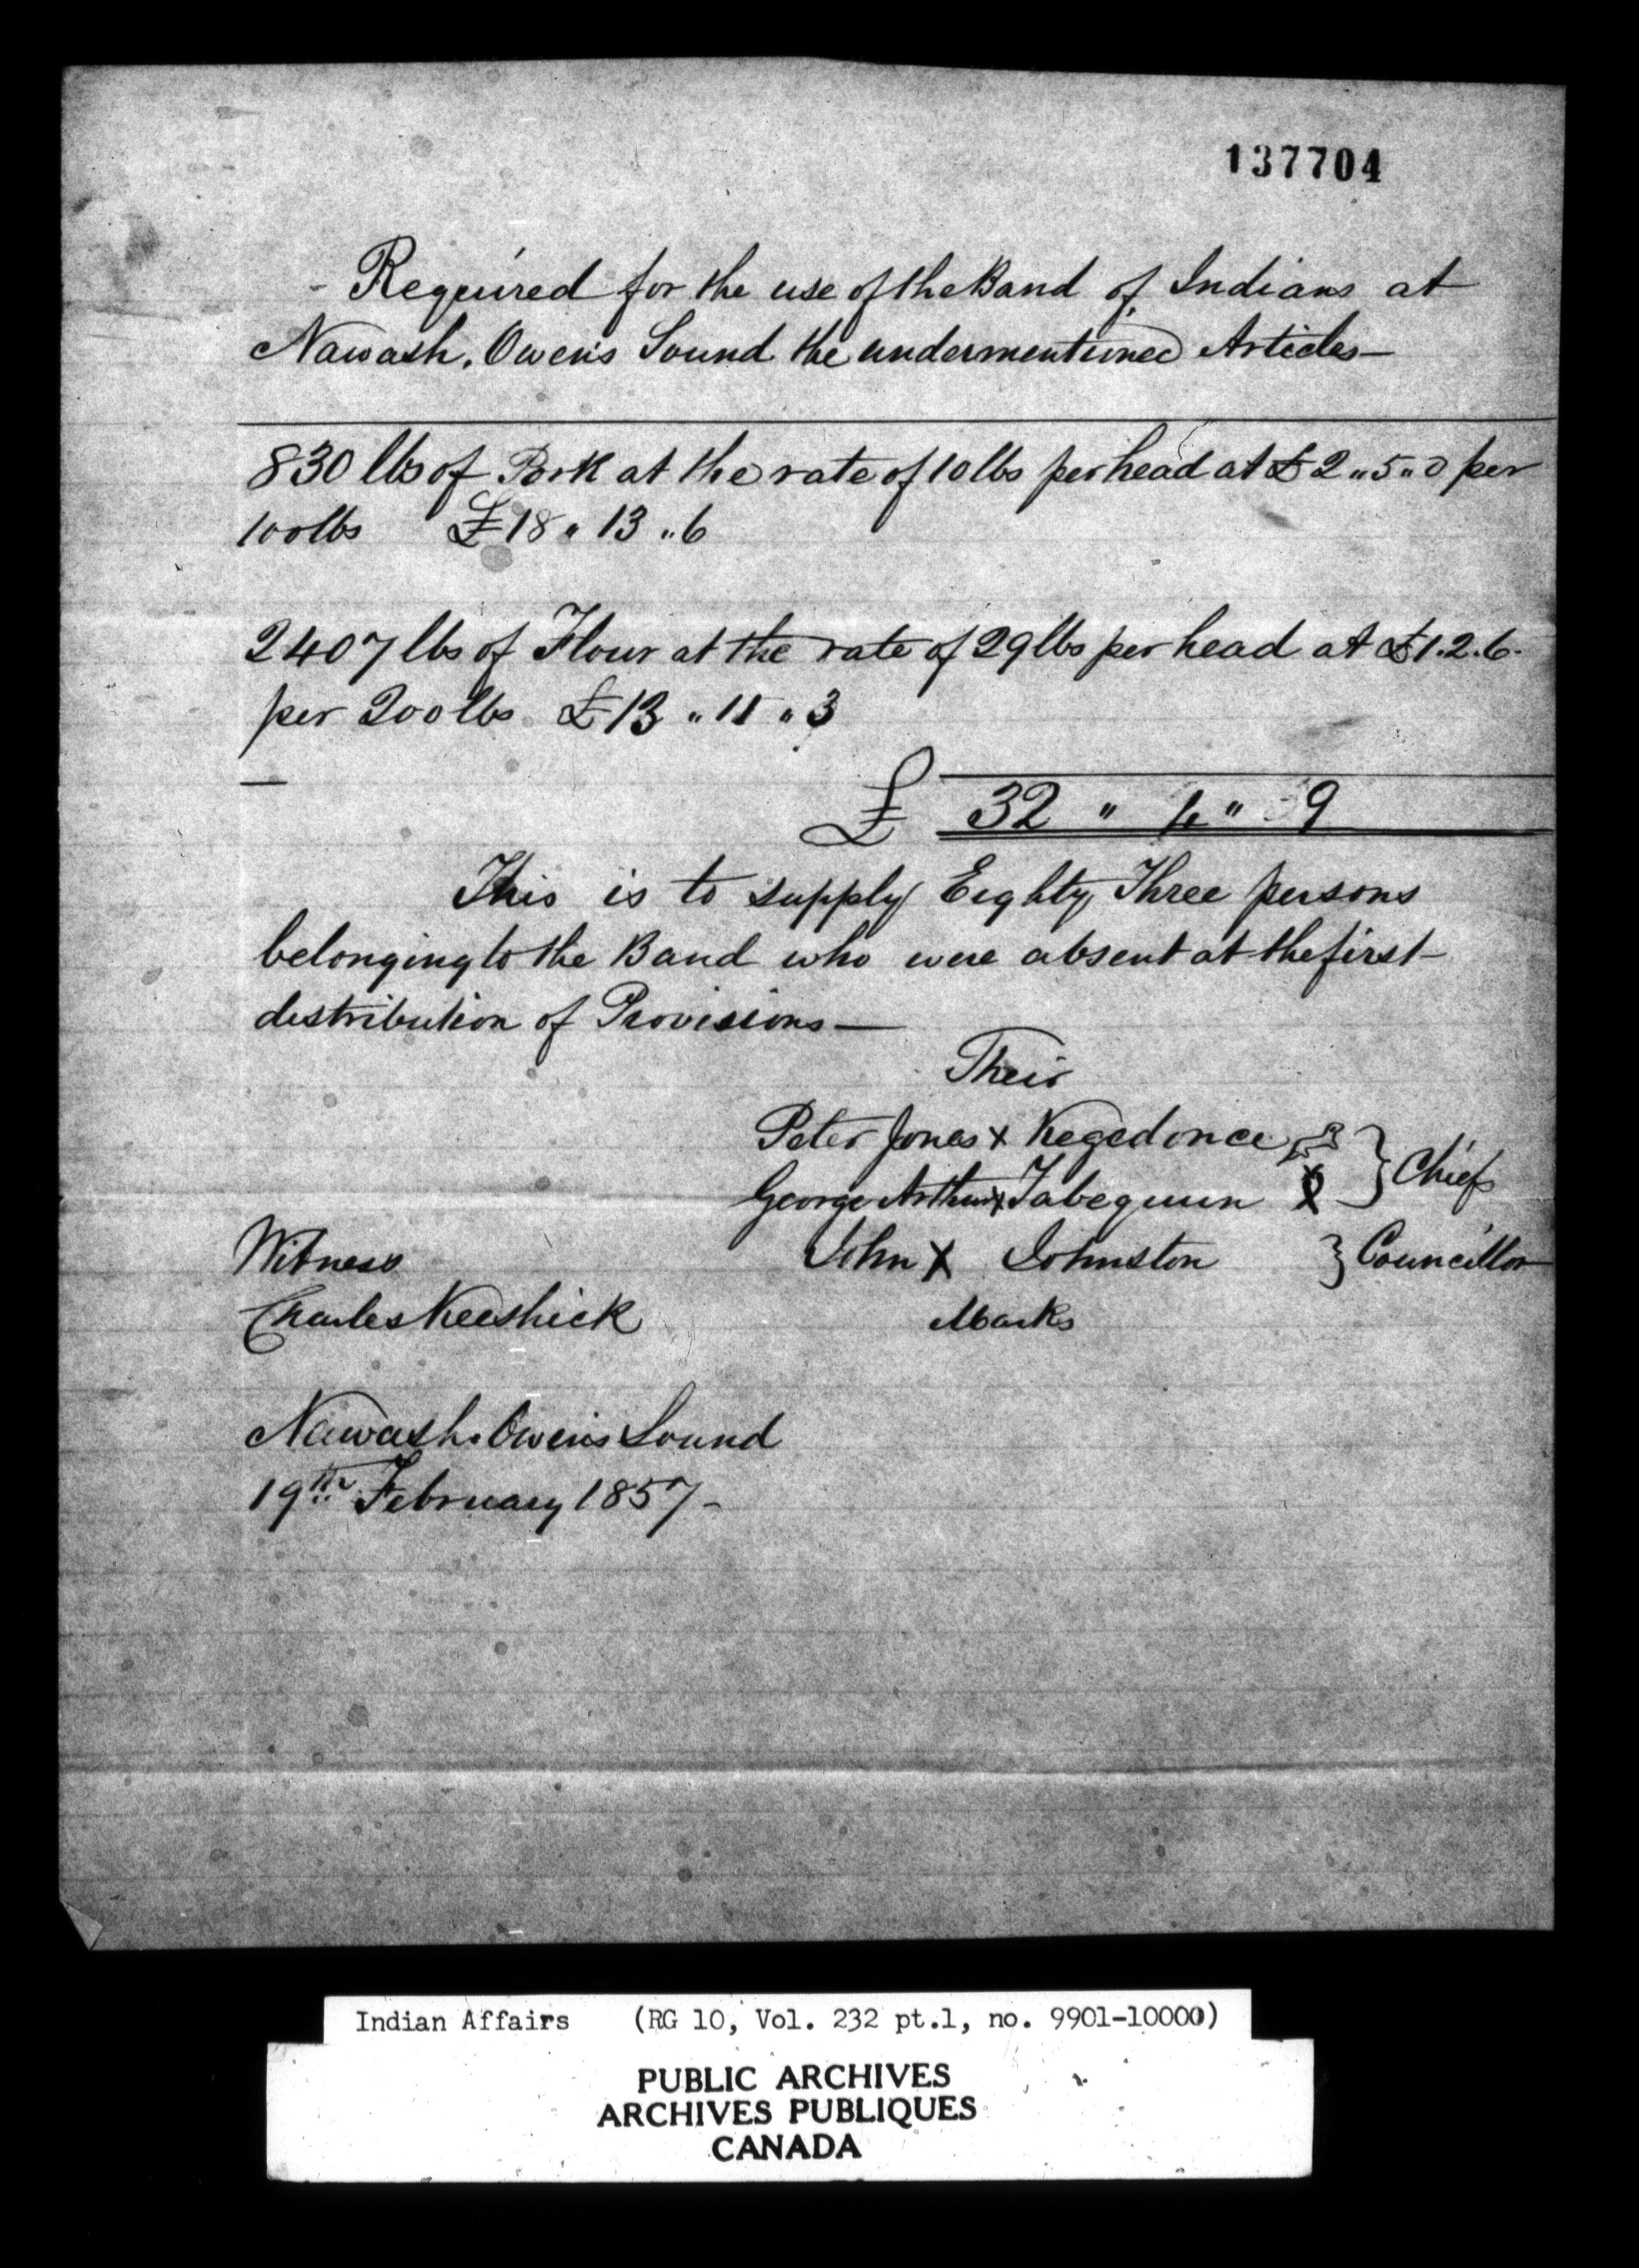 137704
- Required for the use of the Band of Indians at
Nawash, Owen's Sound the undermentioned Articles—
830 lbs of Pork at the rate of 10 lbs per head at £2 „ 5 „ 0 per
100 lbs £18 „ 13 „ 6
2407 lbs of Flour at the rate of 29 lbs per head at £1.2.6.
per 200 lbs £13 „ 11 „ 3
£ 32 „ 4 „ 9
This is to supply Eighty Three persons
belonging to the Band who were absent at the first
distribution of Provisions—
Their
Peter Jones X Kegedonce } Chiefs
George Arthur X Tabeguun
Witness John X Johnston } Councillor
Charles Keeshick Marks
Nawash. Owen's Sound
19th February 1857-
Indian Affairs (RG 10, Vol. 232 pt.1, no. 9901-10000)
PUBLIC ARCHIVES
ARCHIVES PUBLIQUES
CANADA